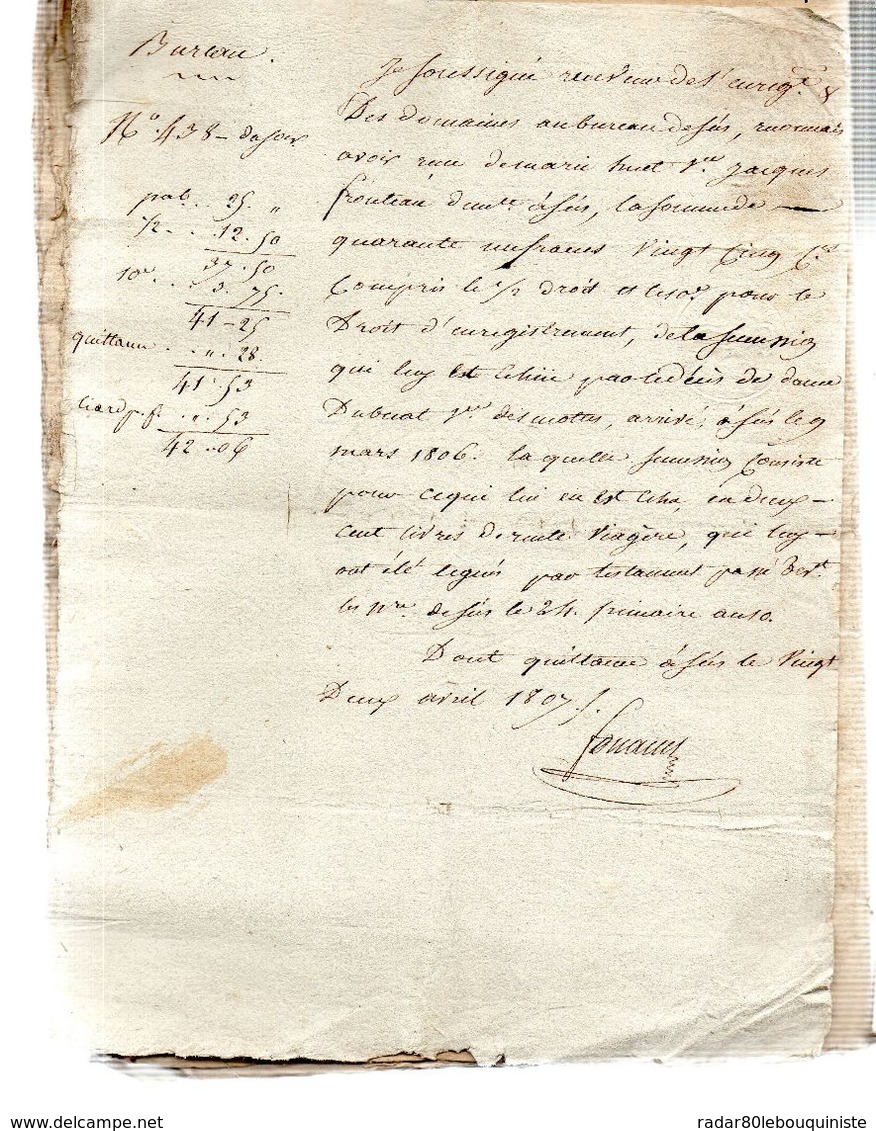 Bureau.
N.o 438 - 
pal. .. 25. "
1/2 .. 12.50
37.50
10e .. 3.75.
41-25
quittance .. ". 28.
41.53
 .. ". 53
42.06
Je soussigné receveur de l'enregt. &
Des domaines au bureau de Sés, reconnais
avoir reçu de marie huet Ve. Jacques
frouteau demte. à Sés, la somme de
quarante un francs Vingt Cinq Ces
Compris le 1/2 droit et le 10e. pour le
Droit d'enregistrement, de la succession
qui luy est échüe par le décès de dame
Dubuat Ve. desmottes, arrivé, à Sés le 9
mars 1806. la quelle succession Consiste
pour ce qui lui en est échu, en deux
cent livres de rente Viagère, qui luy
ont été legués par testament passé devt.
les nres. de Sés le 24. frimaire an 10.
Dont quittance à Sés le Vingt
Deux avril 1807 /.
delcampe.net
radar80lebouquiniste